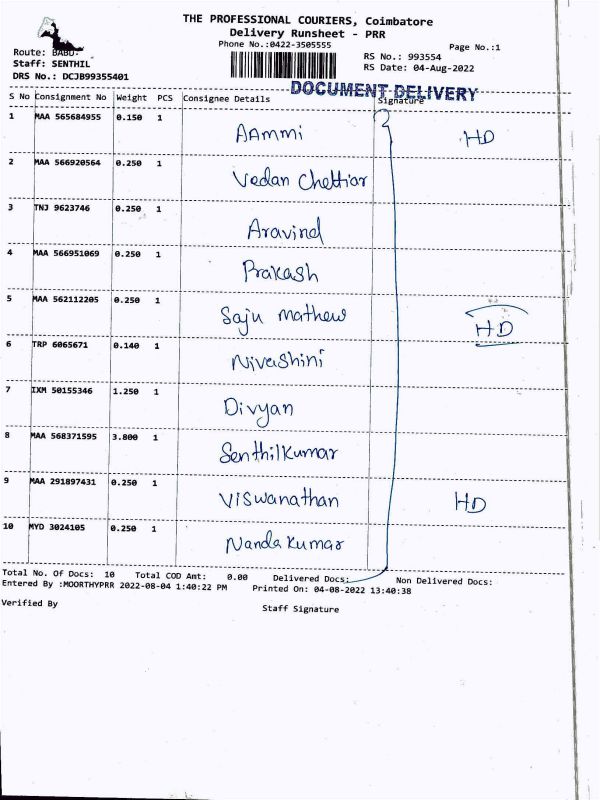 THE PROFESSIONAL COURIERS, Coimbatore
Delivery Runsheet - PRR
Phone No.:0422-3505555
Page No.:1
Route: BABU-
Staff: SENTHIL
DRS No.: DCJB99355401
RS No.: 993554
RS Date: 04-Aug-2022
DOCUMENT DELIVERY
S No Consignment No Weight PCS Consignee Details Signature
1 MAA 565684955 0.150 1 AAmmi HD
2 MAA 566920564 0.250 1 Vedan Chettiar
3 TNJ 9623746 0.250 1 Aravind
4 MAA 566951069 0.250 1 Prakash
5 MAA 562112205 0.250 1 Saju Mathew HD
6 TRP 6065671 0.140 1 Nivashini
7 IXM 50155346 1.250 1 Divyan
8 MAA 568371595 3.800 1 Senthilkumar
9 MAA 291897431 0.250 1 Viswanathan HD
10 MYD 3024105 0.250 1 Nanda kumar
Total No. Of Docs: 10 Total COD Amt: 0.00 Delivered Docs: Non Delivered Docs:
Entered By :MOORTHYPRR 2022-08-04 1:40:22 PM Printed On: 04-08-2022 13:40:38
Verified By Staff Signature